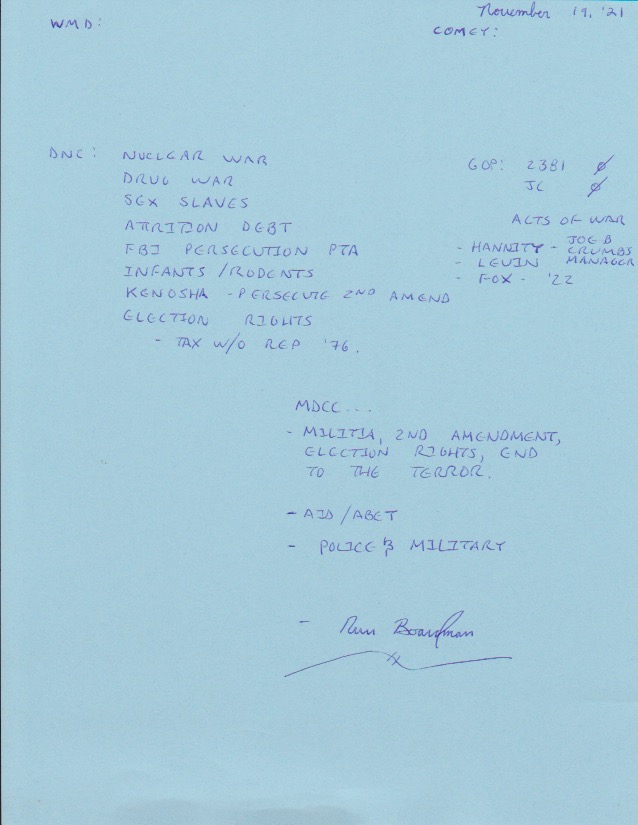 November 19, '21
WMD:
COMEY:
DNC: NUCLEAR WAR
DRUG WAR
SEX SLAVES
ATTRITION DEBT
FBI PERSECUTION PTA
INFANTS / RODENTS
KENOSHA - PERSECUTE 2ND AMEND
ELECTION RIGHTS
- TAX W/O REP '76.
GOP: 2381 Ø
JC Ø
ACTS OF WAR
- HANNITY - JOE B CRUMBS
- LEVIN MANAGER
- FOX - '22
MDCC...
- MILITIA, 2ND AMENDMENT,
ELECTION RIGHTS, END
TO THE TERROR.
- AID / ABET
- POLICE & MILITARY
- Boardman